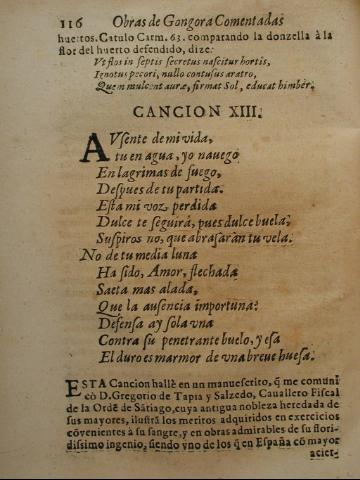 116 Obras de Gongora Comentadas
huertos. Catulo Carm. 63. comparando la donzella à la
flor del huerto defendido, dize.
Vt flos in septis secretus nascitur hortis,
Ignotus pecori, nullo contusus aratro,
Quem mulcent auræ, firmat Sol, educat himbèr.
CANCION XIII.
AVsente de mi vida,
tu en agua, yo nauego
En lagrimas de fuego,
Despues de tu partida.
Esta mi voz perdida
Dulce te seguirà, pues dulce buela,
Suspiros no, que abrasaràn tu vela.
No de tu media luna
Ha sido, Amor, flechada
Saeta mas alada,
Que la ausencia importuna:
Defensa ay sola vna
Contra su penetrante buelo, y esa
El duro es marmor de vna breue huesa.
ESTA Cancion hallè en un manuescrito, q̃ me comuni
cò D. Gregorio de Tapia y Salzedo, Cauallero Fiscal
de la Ordẽ de Sãtiago, cuya antigua nobleza heredada de
sus mayores, ilustrã los meritos adquiridos en exercicios
cõvenientes à su sangre, y en obras admirables de su flori-
dissimo ingenio, siendo vno de los q̃ en España cõ mayor
aciet-